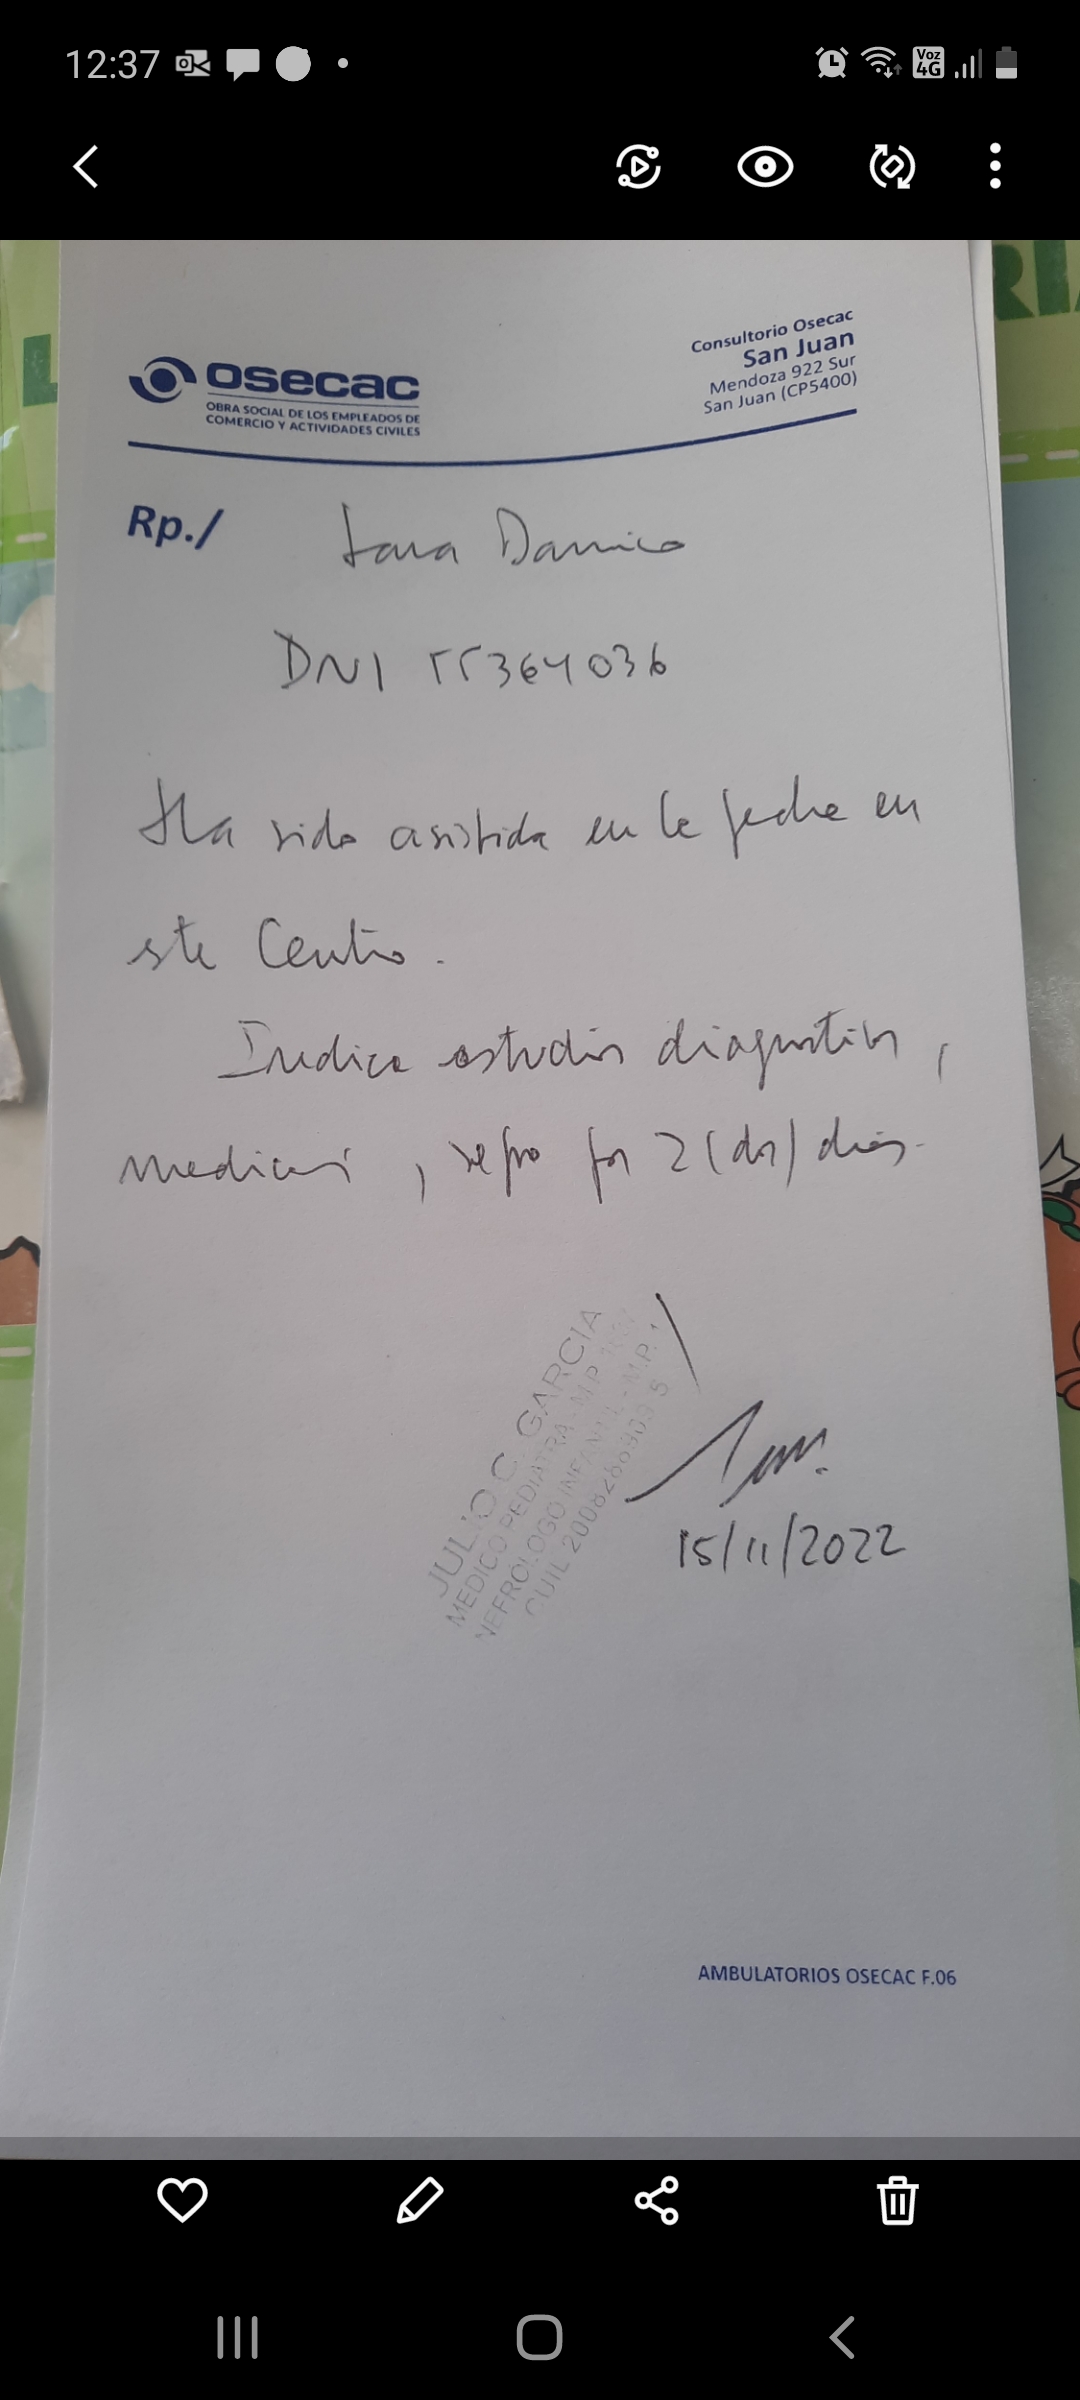 12:37
Voz
4G
osecac
OBRA SOCIAL DE LOS EMPLEADOS DE
COMERCIO Y ACTIVIDADES CIVILES
Consultorio Osecac
San Juan
Mendoza 922 Sur
San Juan (CP5400)
Rp./
Damico
DNI 55364036
Ha sido asistida en la fecha en
este Centro.
Indico estudios diagnosticos,
, reposo por 2 (dos) dias.
JULIO C. GARCIA
MEDICO PEDIATRA - M.P.
NEFROLOGO INFANTIL - M.P.
CUIL
15/11/2022
AMBULATORIOS OSECAC F.06